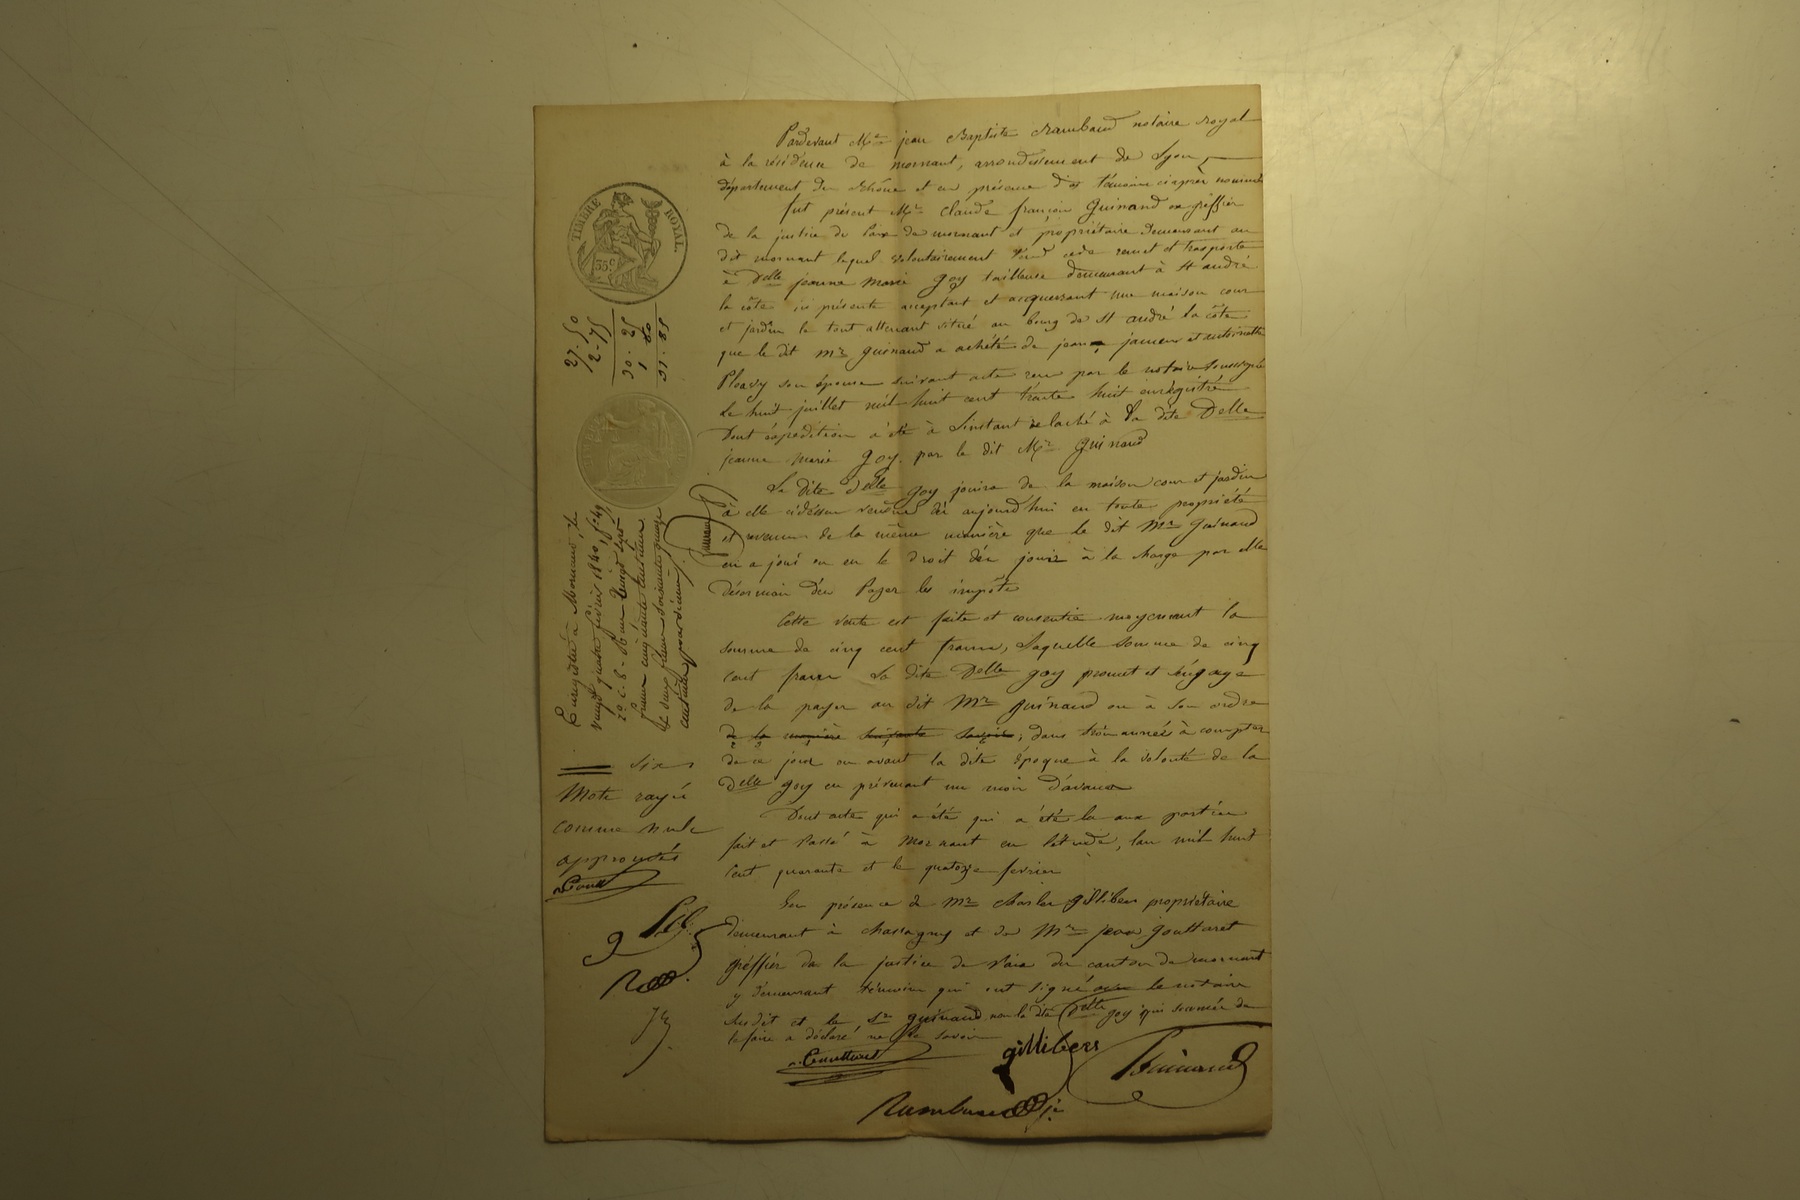 Pardevant Me jean Baptiste Rambaud notaire royal
à la résidence de mornant, arrondissement de Lyon,
département du Rhône et en présence des témoins ciaprès nommés
fut présent Mr Claude françois Guinand ex greffier
de la justice de Paix de mornant et propriétaire demeurant au
dit mornant lequel volontairement vend cède remet et trasporte
à Delle jeanne Marie Goy tailleuse demeurant à St andré
la côte ici présente acceptant et acquerrant une maison cour
et jardin le tout attenant situé au bourg de St andré la côte
que le dit Mr Guinand a achété de jean janier et antoinette
Pleavy son épouse suivant acte reçu par le notaire soussigné
Le huit juillet mil huit cent trente huit enrégistré
Dont éxpédition a été à Linstant relaché à la dite Delle
jeanne Marie Goy. par le dit Mr Guinand
La dite Delle Goy jouira de la maison cour et jardin
à elle cidéssus vendus dès aujourd'hui en toute propriété
et revenus de la même manière que le dit Mr Guinand
en a joui ou eu le droit d'én jouir à la charge par elle
désormais d'én Payer les impôts
Cette vente est faite et consentie moyennant la
somme de cinq cent francs, Laquelle somme de cinq
cent francs La dite Delle Goy promet et s'éngage
de la payer au dit Mr Guinand ou à son ordre
de la manière suivante savoir; dans trois années à compter
de ce jour ou avant la dite époque à la volonté de la
Delle Goy en prévenant un mois d'avance
Dont acte qui a été lu aux parties
fait et Passé à Mornant en l'étude, l'an mil huit
Cent quarante et le quatorze fevrier
En présence de Mr Charles gillibers propriétaire
demeurant à chassagny et de Mr jean gouttaret
Gréffier de la justice de Paix du canton de mornant
y demeurant témoins qui ont signé avec le notaire
Susdit et le Sr Guinand non la dite Delle Goy qui sommée de
le faire a déclaré ne le savoir
gillibers
Guinand
Rambaud
TIMBRE ROYAL.
35c
27.50
2-75
30.25
1 60
31.85
Enregistré à Mornant, le
vingt quatre février 1840, f° 49
r° c. 8 - Reçu vingt sept
francs cinquante centimes
et deux francs soixante quinze
centimes pour décime.
Six
Mots rayés
comme nuls
approuvés